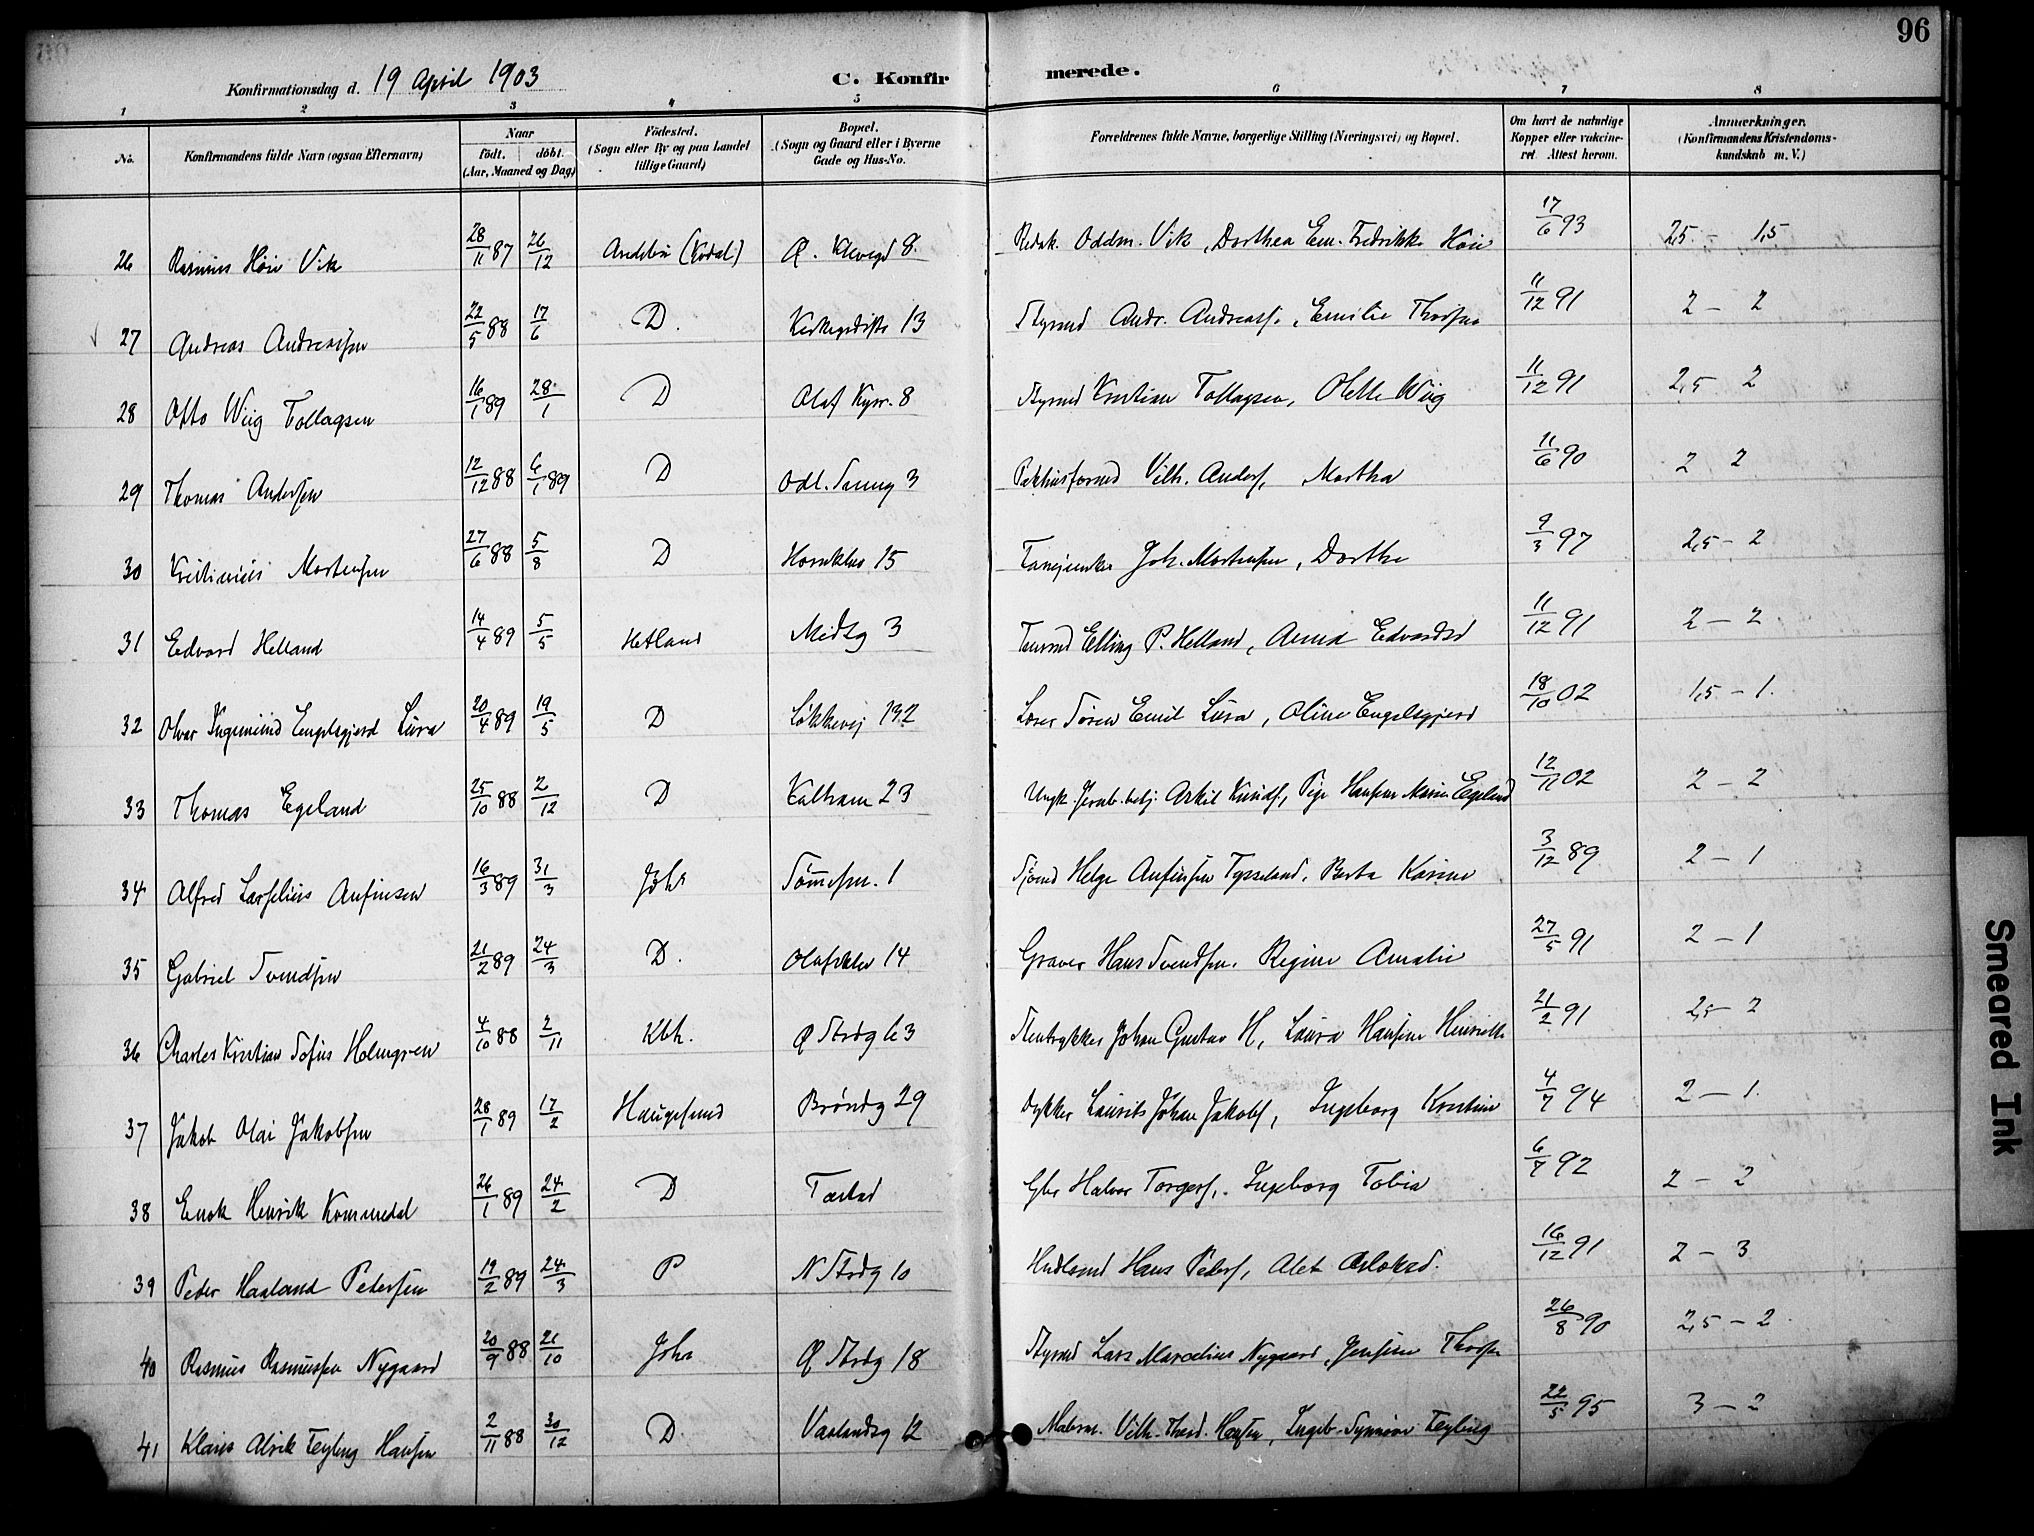 96
Konfirmationsdag d. 19 April 1903
C. Konfirmerede.
1 2 3 4 5 6 7 8
No. Konfirmandens fulde Navn (ogsaa Efternavn) Naar födt. döbt. (Aar, Maaned og Dag) Födested. (Sogn eller By og paa Landet tillige Gaard) Bopæl. (Sogn og Gaard eller i Byerne Gade og Hus-No. Forældrenes fulde Navne, borgerlige Stilling (Næringsvei) og Bopæl. Om havt de naturlige Kopper eller vakcineret. Attest herom. Anmærkninger. (Konfirmandens Kristendomskundskab m. V.)
26 Rasmus Höie Vik 28/11 87 26/12 Ø. 8 Redak. Oddm. Vik, Dorthea Em. Fredrikke Höie 17/6 93 2,5 - 1,5
27 Andreas Andreassen 22/5 88 17/6 D. 13 Styrmd Andr. Andreass., Emilie Thorsen 11/12 91 2 - 2
28 Otto Wiig Tollagsen 16/1 89 28/1 D Olaf Kyrr. 8 Styrmd Kristian Tollagsen, Olette Wiig 11/12 91 2,5 2
29 Thomas Andersen 12/12 88 6/1 89 D 3 Vilh. Anders, Martha 11/6 90 2 2
30 Kristinius Mortensen 27/6 88 5/8 D Hornklov 15 Joh. Mortensen, Dorthe 9/3 97 2,5 - 2
31 Edvard Helland 14/4 89 5/5 Hetland Midtg 3 Elling P. Helland, Anna Edvardsd 11/12 91 2 - 2
32 Olvar Ingemund Engelsgjerd Lura 20/4 89 19/5 D Løkkevej 132 Sören Emil Lura, Oline Engelsgjerd 18/10 02 1,5 - 1.
33 Thomas Egeland 25/10 88 2/12 D 23 Ungk. Askil Knuds, Pige Hansine Marie Egeland 12/11 02 2 - 2
34 Alfred Larselius Anfinsen 16/3 89 31/3 Johs 1 Sjømd Helge Anfinsen Tysseland, Berta Karine 3/12 89 2 - 1
35 Gabriel Svendsen 21/2 89 24/3 D. Olafsklev 14 Graver Hans Svendsen. Regine Amalie 27/5 91 2 - 1
36 Charles Kristian Sofus Holmgren 4/10 88 2/11 Kbh. Ø Strdg 63 Stentrykker Johan Gustav H, Laura Hansine Henriette 21/2 91 2,5 2
37 Jakob Olai Jakobsen 28/1 89 17/2 Haugesund Brøndg 29 Dykker Laurits Johan Jakobs, Ingeborg Kristine 4/7 94 2 - 1.
38 Enok Henrik Kommedal 26/1 89 24/2 D Tastad Gbr Halvor Torgers,. Ingeborg Tobia 6/7 92 2 - 2
39 Peder Haaland Pedersen 19/2 89 24/3 P N Strdg 10 Hans Peders, Alet 16/12 91 2 - 3
40 Rasmus Rasmussen Nygaard 20/9 88 21/10 Johs Ø Strdg 18 Styrmd Lars Marcelius Nygaard, Jensine Thorsen 26/8 90 2,5 - 2
41 Klaus Alvik Teyberg Hansen 2/11 88 30/12 D. Vaalandsg 12 Malerm. Vilh. Theod. Hansen, Ingeb. Synnøve Teyberg 22/5 95 3 - 2
Smeared Ink